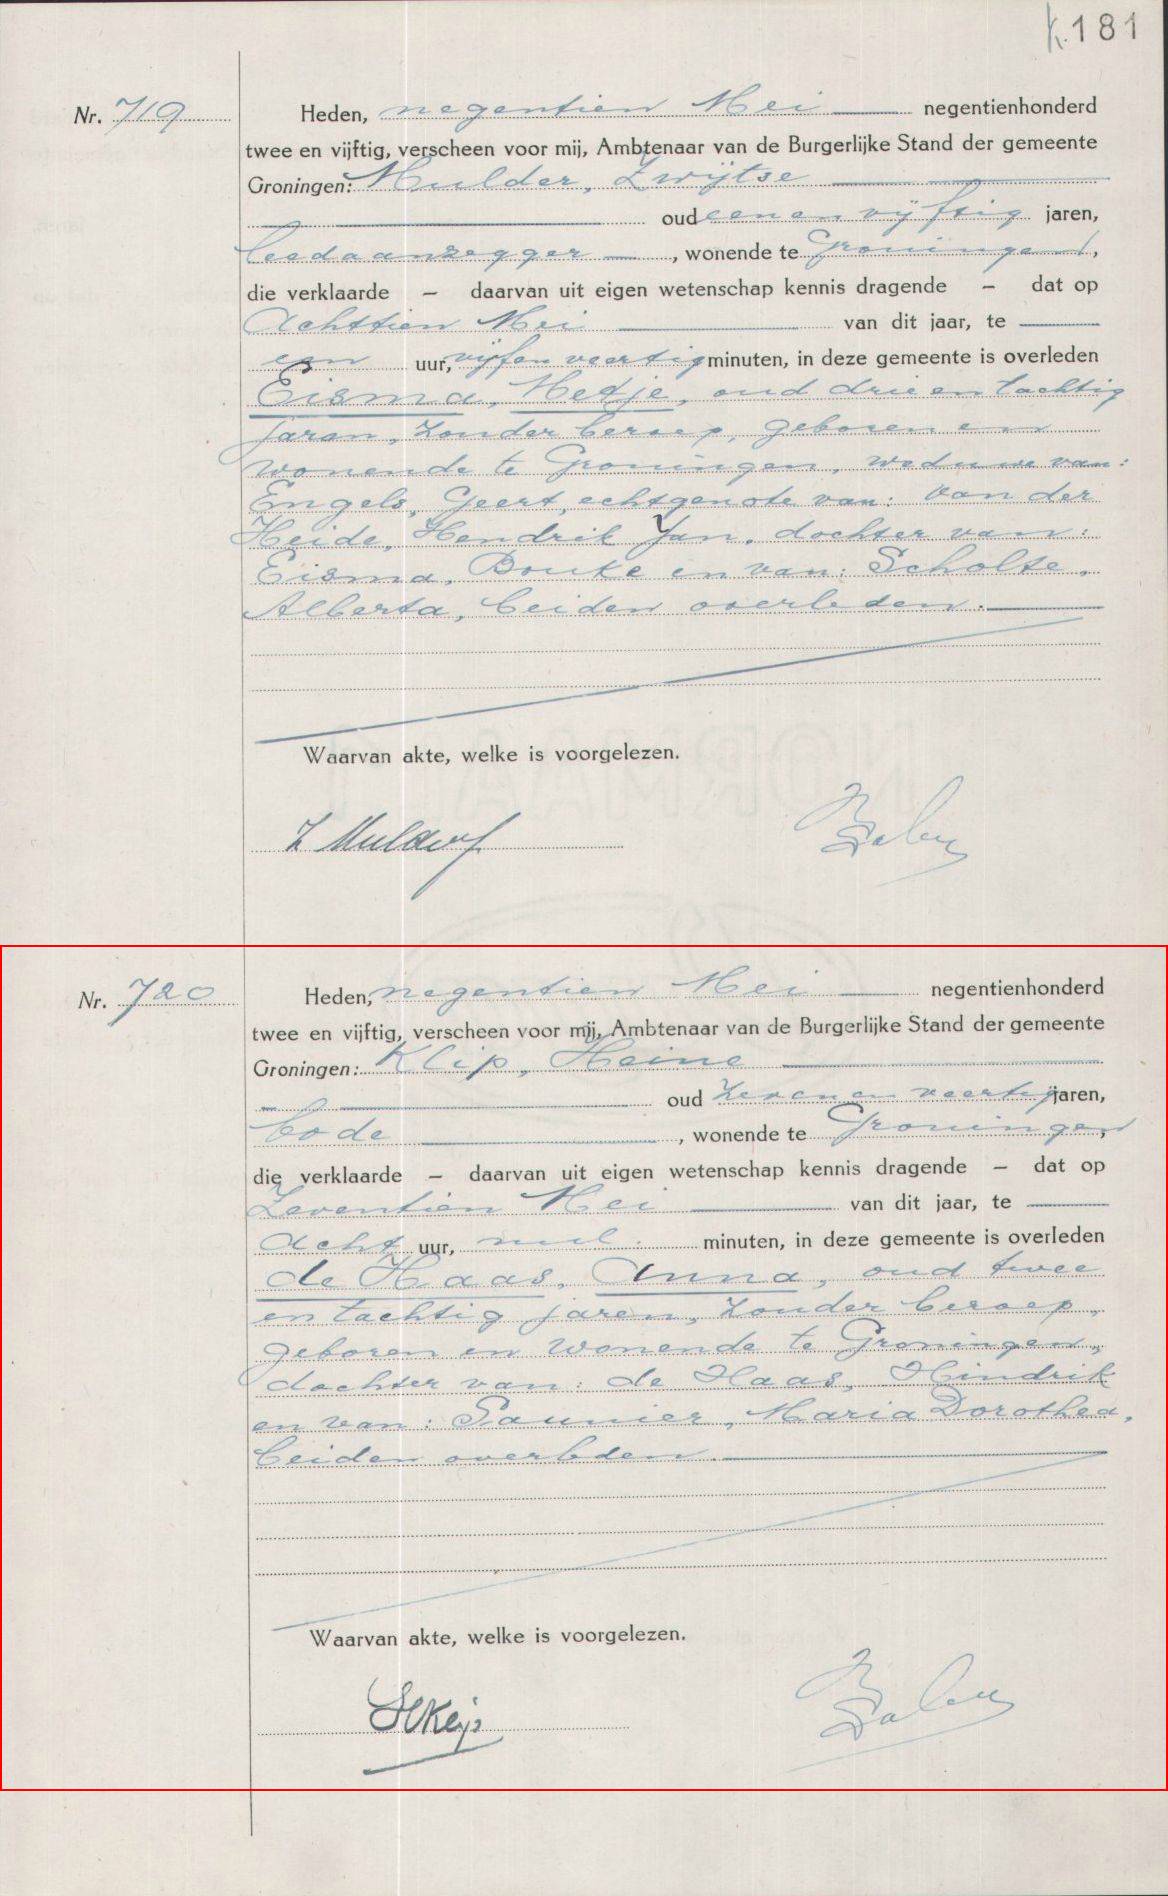 K.181
Nr. 719
Heden, negentien Mei negentienhonderd
twee en vijftig, verscheen voor mij, Ambtenaar van de Burgerlijke Stand der gemeente
Groningen: Mulder, Zwijtse
oud eenen vijftig jaren,
leedaanzegger, wonende te Groningen,
die verklaarde – daarvan uit eigen wetenschap kennis dragende – dat op
Achttien Mei van dit jaar, te
een uur, vijfen veertig minuten, in deze gemeente is overleden
Eisma, Metje, oud drie en tachtig
jaren, zonder beroep, geboren en
wonende te Groningen, weduwe van:
Engels, Geert, echtgenote van: van der
Heide, Hendrik Jan, dochter van:
Eisma, Bouke en van: Scholte,
Alberta, beiden overleden.
Waarvan akte, welke is voorgelezen.
Z Mulder
Nr. 720
Heden, negentien Mei negentienhonderd
twee en vijftig, verscheen voor mij, Ambtenaar van de Burgerlijke Stand der gemeente
Groningen: Klip, Heine
oud zevenen veertig jaren,
bode, wonende te Groningen,
die verklaarde – daarvan uit eigen wetenschap kennis dragende – dat op
Zeventien Mei van dit jaar, te
acht uur, nul minuten, in deze gemeente is overleden
de Haas, Anna, oud twee
en tachtig jaren, zonder beroep,
geboren en wonende te Groningen,
dochter van: de Haas, Hindrik
en van: Saunier, Maria Dorothea,
beiden overleden.
Waarvan akte, welke is voorgelezen.
HKlip